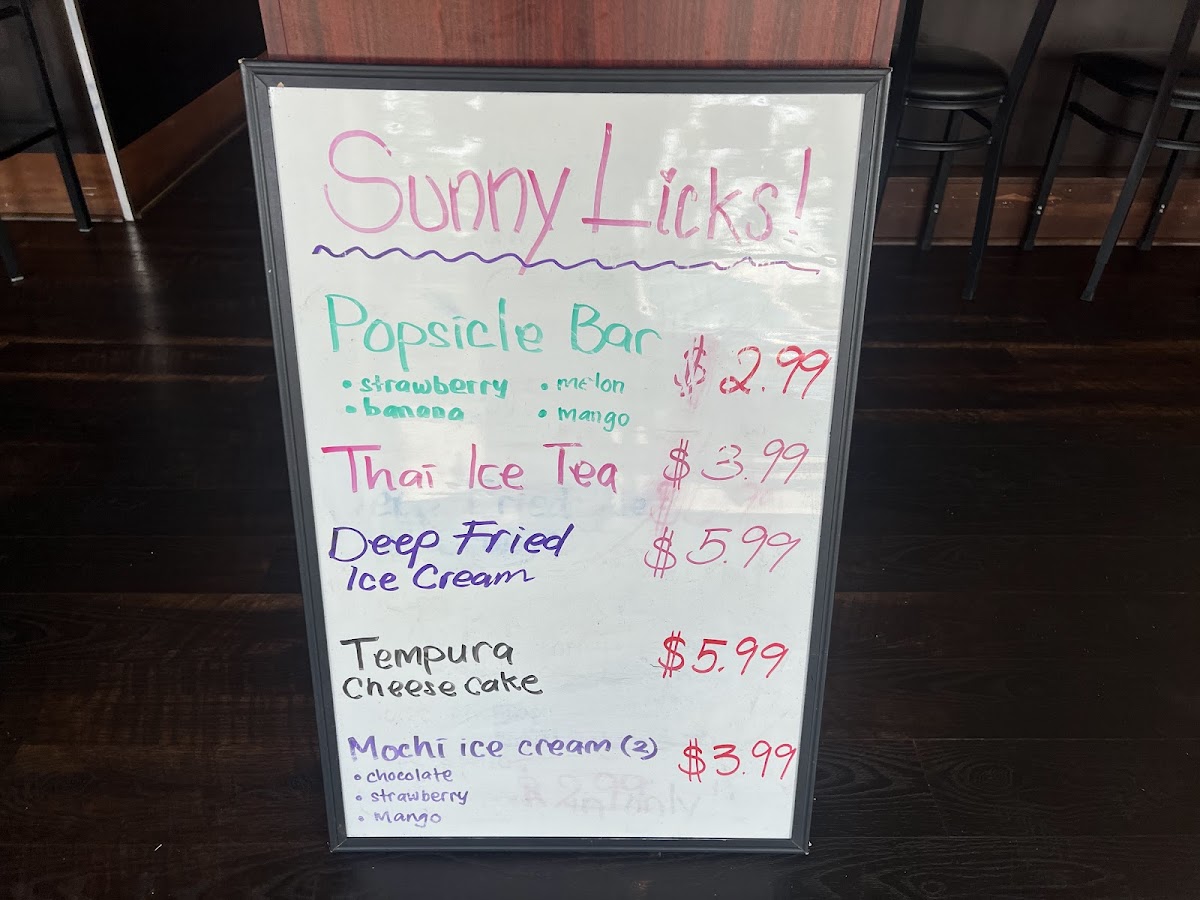 Sunny Licks!
Popsicle Bar $2.99
• strawberry • melon
• banana • mango
Thai Ice Tea $3.99
Deep Fried $5.99
Ice Cream
Tempura $5.99
Cheese cake
Mochi ice cream (2) $3.99
• chocolate
• strawberry
• Mango